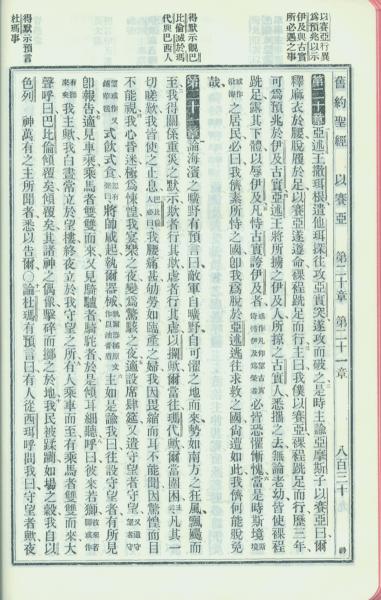 以賽亞行異
為預兆以示
伊及與古實
所必遇之事
得默示觀巴
比倫滅於瑪
代與巴西人
得默示預言
杜瑪事
舊約聖經 以賽亞 第二十章 第二十一章 八百三十
第二十章 亞述王撒珥根遣他珥探往攻亞實突遂攻而破之是時主諭亞摩斯子以賽亞曰爾
釋麻衣於腰脫履於足以賽亞遂遵命裸程跣足而行主曰我僕以賽亞裸程跣足而行歷三年
可為預兆於伊及古實亞述王將所擄之伊及人所掠之古實人悉攜之去無論老幼皆使裸程
跣足露其下體以辱伊及凡恃古實誇伊及者必皆恐懼慚愧當是時斯境
之居民必曰我儕素所恃之國卽我為脫於亞述逃往求救之國尚遭如此我儕何能脫免
哉
第二十一章 論海濱之曠野有預言曰敵軍自曠野自可懼之地而來勢如南方之狂風飄颺而
至我得關係重災之默示欺者行其欺虐者行其虐以攔歟爾當往瑪代歟爾當圍困凡其一
切嗟歎我皆使之止息我腰痛甚劬勞如臨產之婦我因畏縮而耳不能聞因驚惶而目
不能視我心昏迷極為悚惶我宴樂之夜變為驚駭之夜設席肆筵又遣守望者守望
式飲式食將帥咸起執爾器械主如是諭我曰往設守望者有所見
卽報告遙見車乘乘馬者雙雙而來又見騎驢者騎駝者於是傾耳細聽呼曰彼來若獅
我主歟我白晝常立於望樓終夜立於我守望之所有人乘車而至有乘馬者雙雙而來大
聲呼曰巴比倫傾覆矣傾覆矣其諸神之偶像擊碎而擲之於地我民被蹂躪如場之穀我自以
色列神萬有之主所聞者悉以告爾○論杜瑪有預言曰有人從西珥呼問我曰守望者歟夜